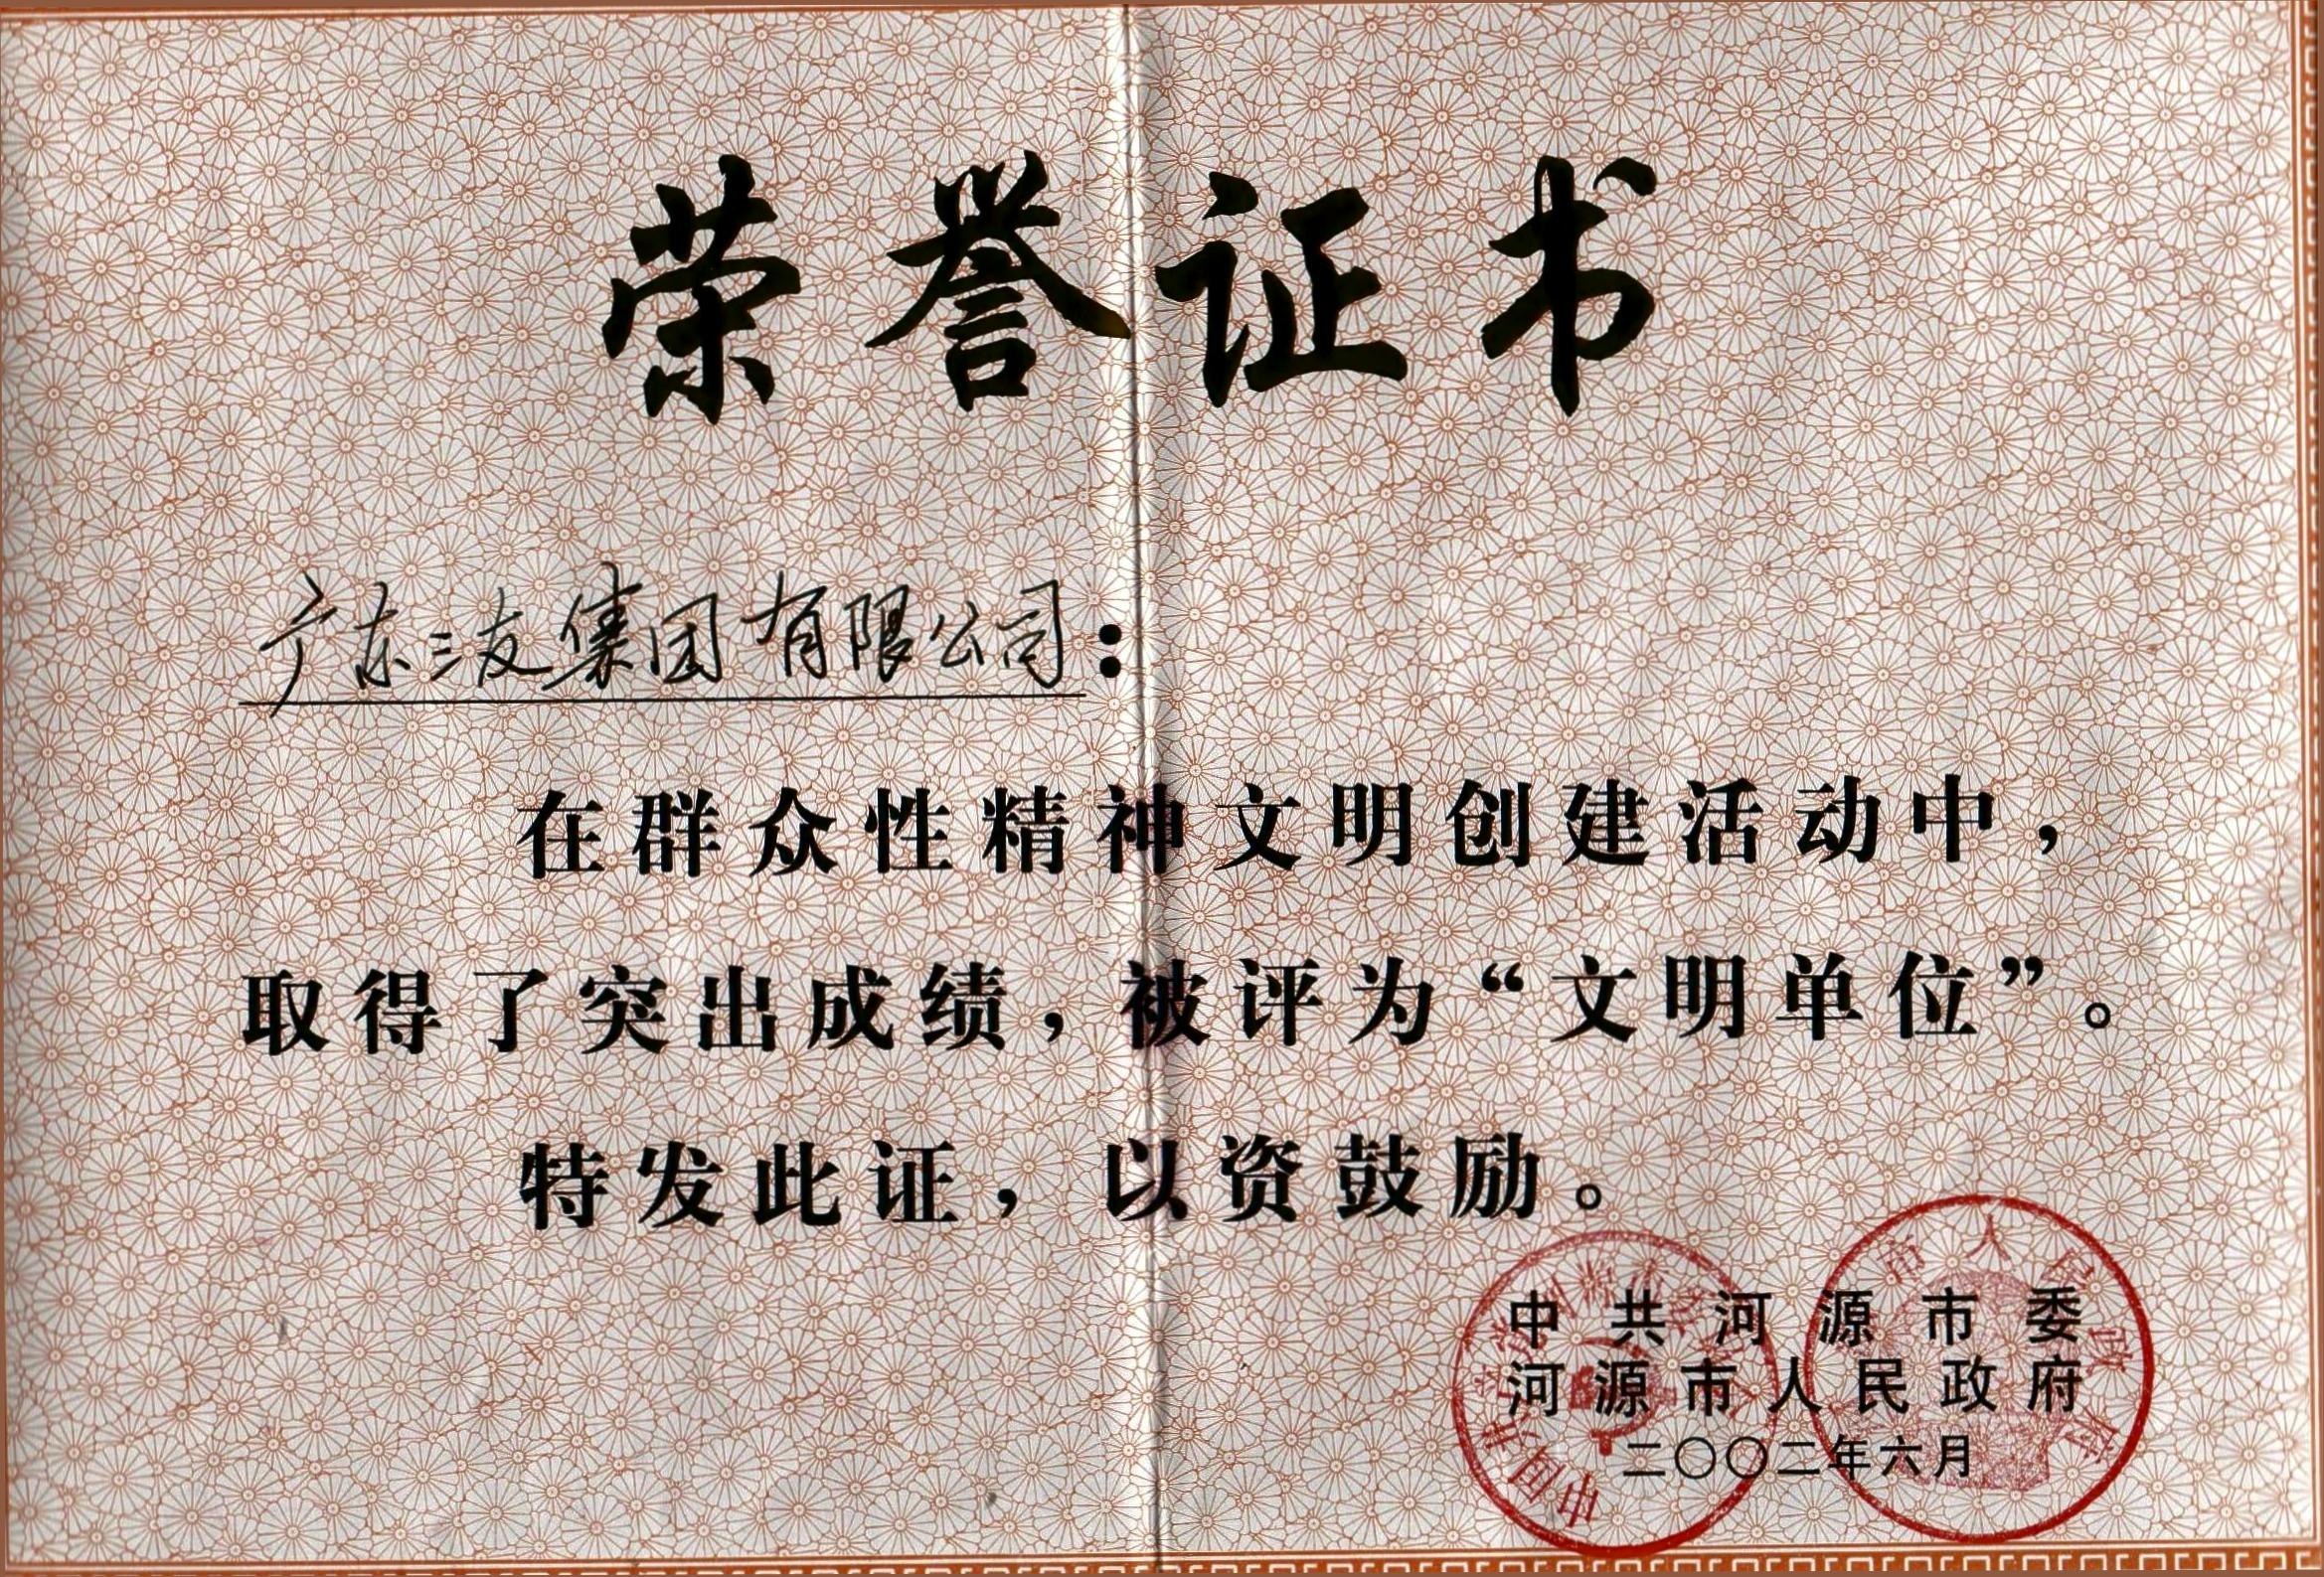 荣誉证书
广东三友集团有限公司：
在群众性精神文明创建活动中，
取得了突出成绩，被评为“文明单位”。
特发此证，以资鼓励。
中共河源市委
河源市人民政府
二〇〇二年六月